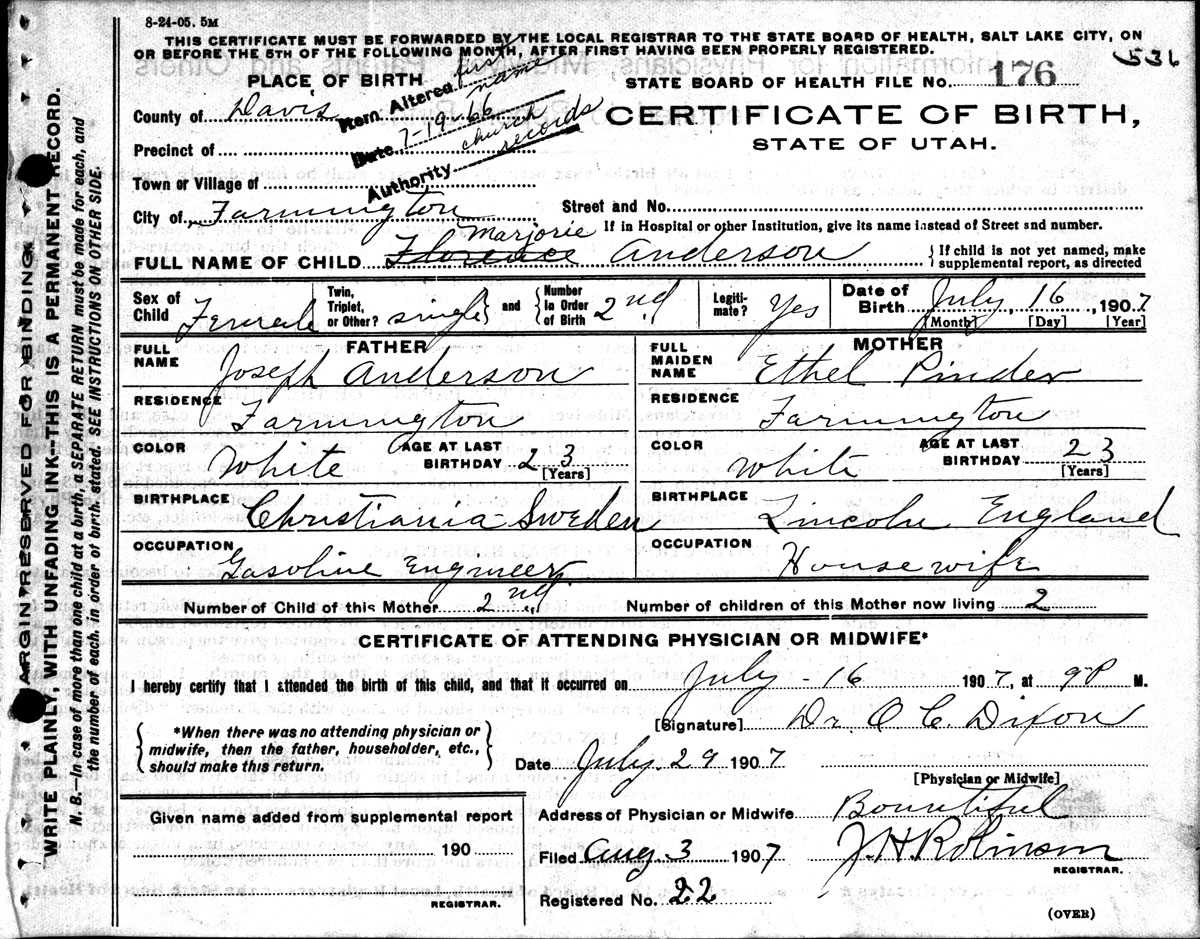 8-24-05. 5M
THIS CERTIFICATE MUST BE FORWARDED BY THE LOCAL REGISTRAR TO THE STATE BOARD OF HEALTH, SALT LAKE CITY, ON
OR BEFORE THE 5TH OF THE FOLLOWING MONTH, AFTER FIRST HAVING BEEN PROPERLY REGISTERED.
536
PLACE OF BIRTH
STATE BOARD OF HEALTH FILE No. 176
Item Altered first name
Date 7-19-66
Authority church records
County of Davis
CERTIFICATE OF BIRTH,
STATE OF UTAH.
Precinct of
Town or Village of
City of Farmington
Street and No.
If in Hospital or other Institution, give its name instead of Street and number.
Marjorie
FULL NAME OF CHILD Florence Anderson
{ If child is not yet named, make
supplemental report, as directed
Sex of Child Female
Twin, Triplet, or Other? single } and { Number In Order of Birth 2nd
Legitimate? Yes
Date of Birth July 16, 1907
[Month] [Day] [Year]
FATHER
FULL NAME Joseph Anderson
RESIDENCE Farmington
COLOR White AGE AT LAST BIRTHDAY 23
[Years]
BIRTHPLACE Christiania Sweden
OCCUPATION Gasoline Engineer
MOTHER
FULL MAIDEN NAME Ethel Pinder
RESIDENCE Farmington
COLOR White AGE AT LAST BIRTHDAY 23
[Years]
BIRTHPLACE Lincoln England
OCCUPATION Housewife
Number of Child of this Mother 2nd Number of children of this Mother now living 2
CERTIFICATE OF ATTENDING PHYSICIAN OR MIDWIFE*
I hereby certify that I attended the birth of this child, and that it occurred on July - 16 1907, at 9 P M.
{ *When there was no attending physician or
midwife, then the father, householder, etc.,
should make this return. }
[Signature] Dr. O C. Dixon
Date July. 29 1907
[Physician or Midwife]
Given name added from supplemental report
190
REGISTRAR.
Address of Physician or Midwife Bountiful
Filed Aug 3 1907 J. H. Robinson
REGISTRAR.
Registered No. 22
(OVER)
MARGIN RESERVED FOR BINDING.
WRITE PLAINLY, WITH UNFADING INK--THIS IS A PERMANENT RECORD.
N. B.—In case of more than one child at a birth, a SEPARATE RETURN must be made for each, and
the number of each, in order of birth, stated. SEE INSTRUCTIONS ON OTHER SIDE.